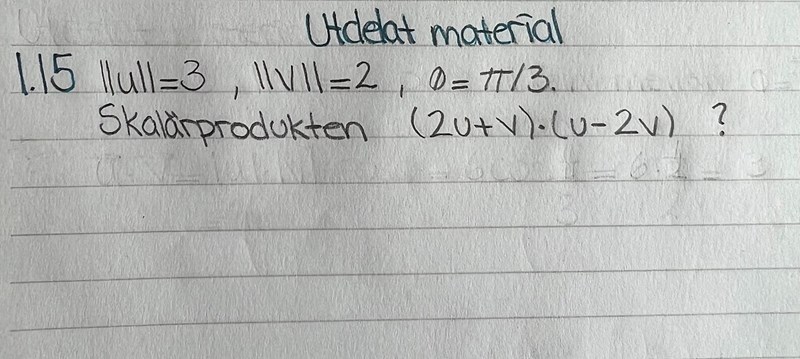 Utdelat material
1.15 ||u||=3, ||v||=2, θ=π/3.
Skalärprodukten (2u+v)·(u-2v) ?